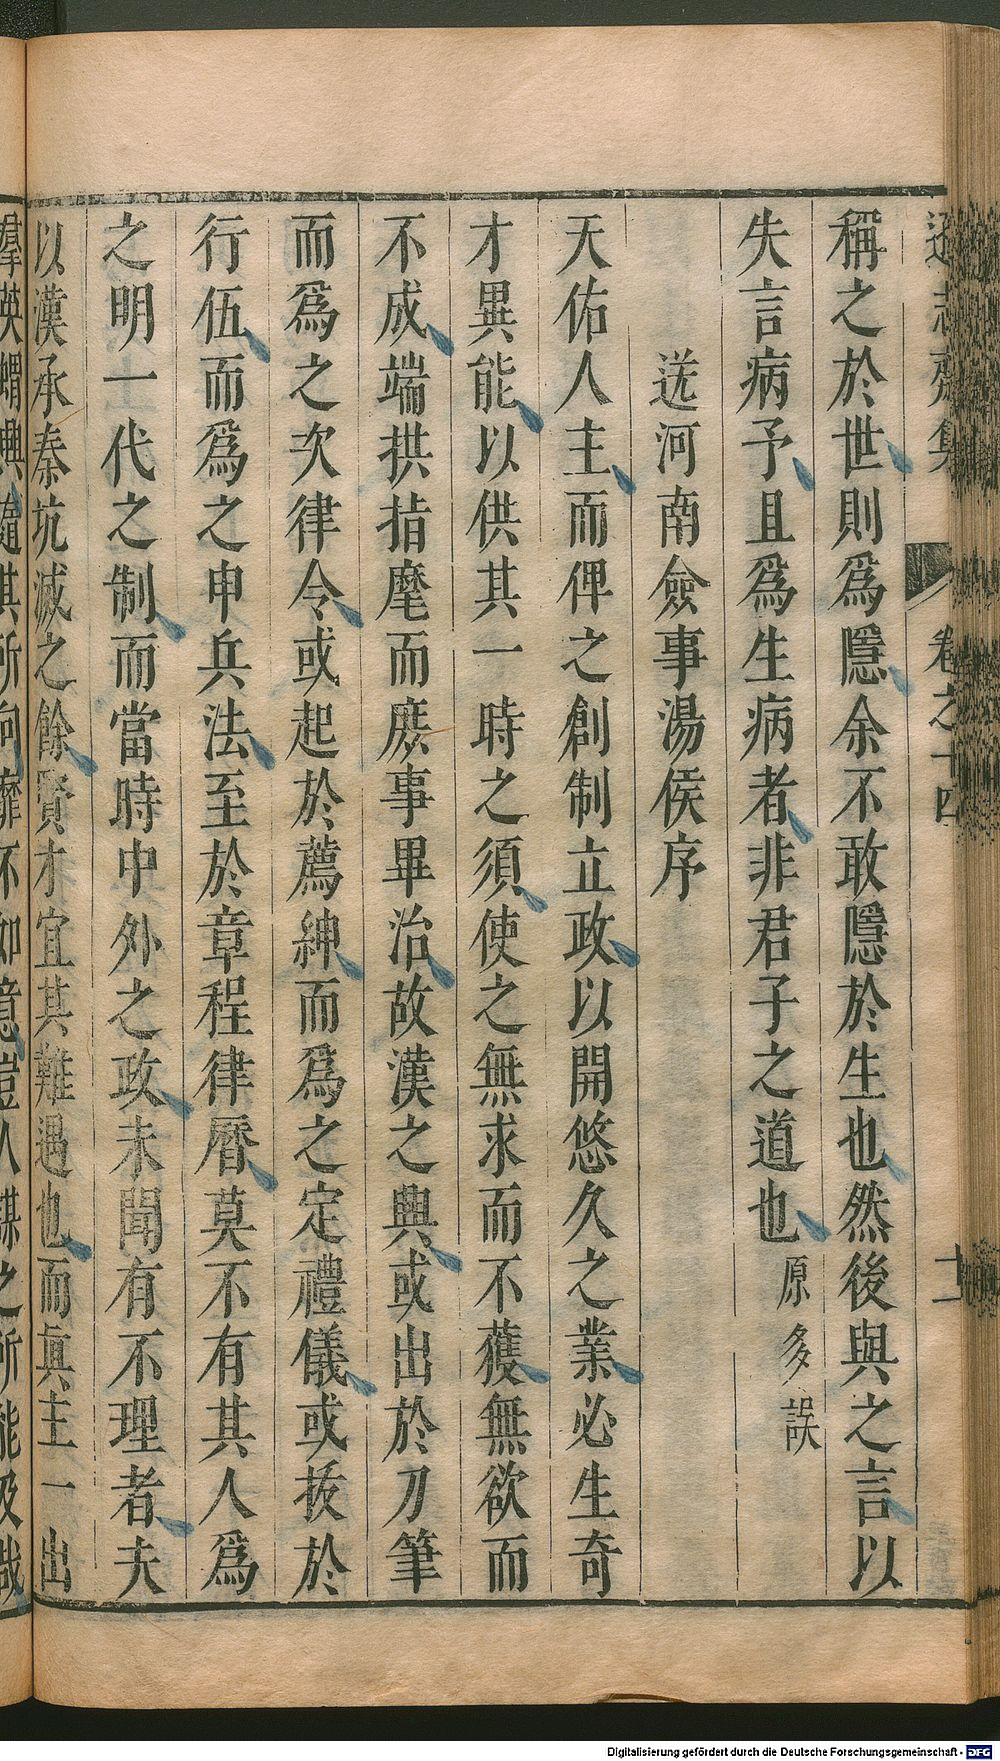 遜志齋集 卷之十四 十一
稱之於世則爲隱余不敢隱於生也然後與之言以
失言病予且爲生病者非君子之道也原多誤
送河南僉事湯侯序
天佑人主而俾之創制立政以開悠久之業必生奇
才異能以供其一時之須使之無求而不獲無欲而
不成端拱指麾而庶事畢治故漢之興或出於刀筆
而爲之次律令或起於薦紳而爲之定禮儀或拔於
行伍而爲之申兵法至於章程律曆莫不有其人爲
之明一代之制而當時中外之政未聞有不理者夫
以漢承秦坑滅之餘賢才宜其難遇也而眞主一出
羣英蝟興隨其所向靡不如意豈人謀之所能及哉
Digitalisierung gefördert durch die Deutsche Forschungsgemeinschaft - DFG